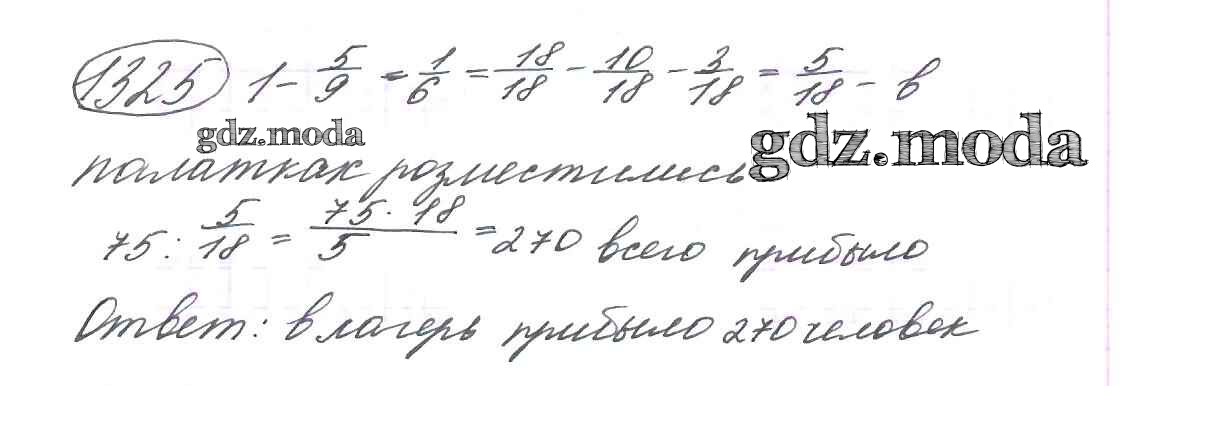 1325 1 - 5/9 - 1/6 = 18/18 - 10/18 - 3/18 = 5/18 - в
gdz.moda gdz.moda
палатках розместились
75 : 5/18 = 75 · 18/5 = 270 всего прибыло
Ответ: в лагерь прибыло 270 человек